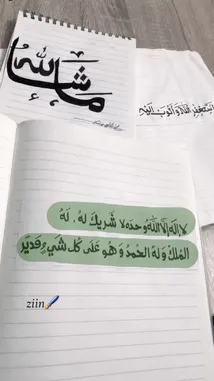 ما شاء الله
استغفر الله و أتوب إليه
لا إله إلا الله وحده لا شريك له ، له
الملك وله الحمد و هو على كل شيء قدير
ziin